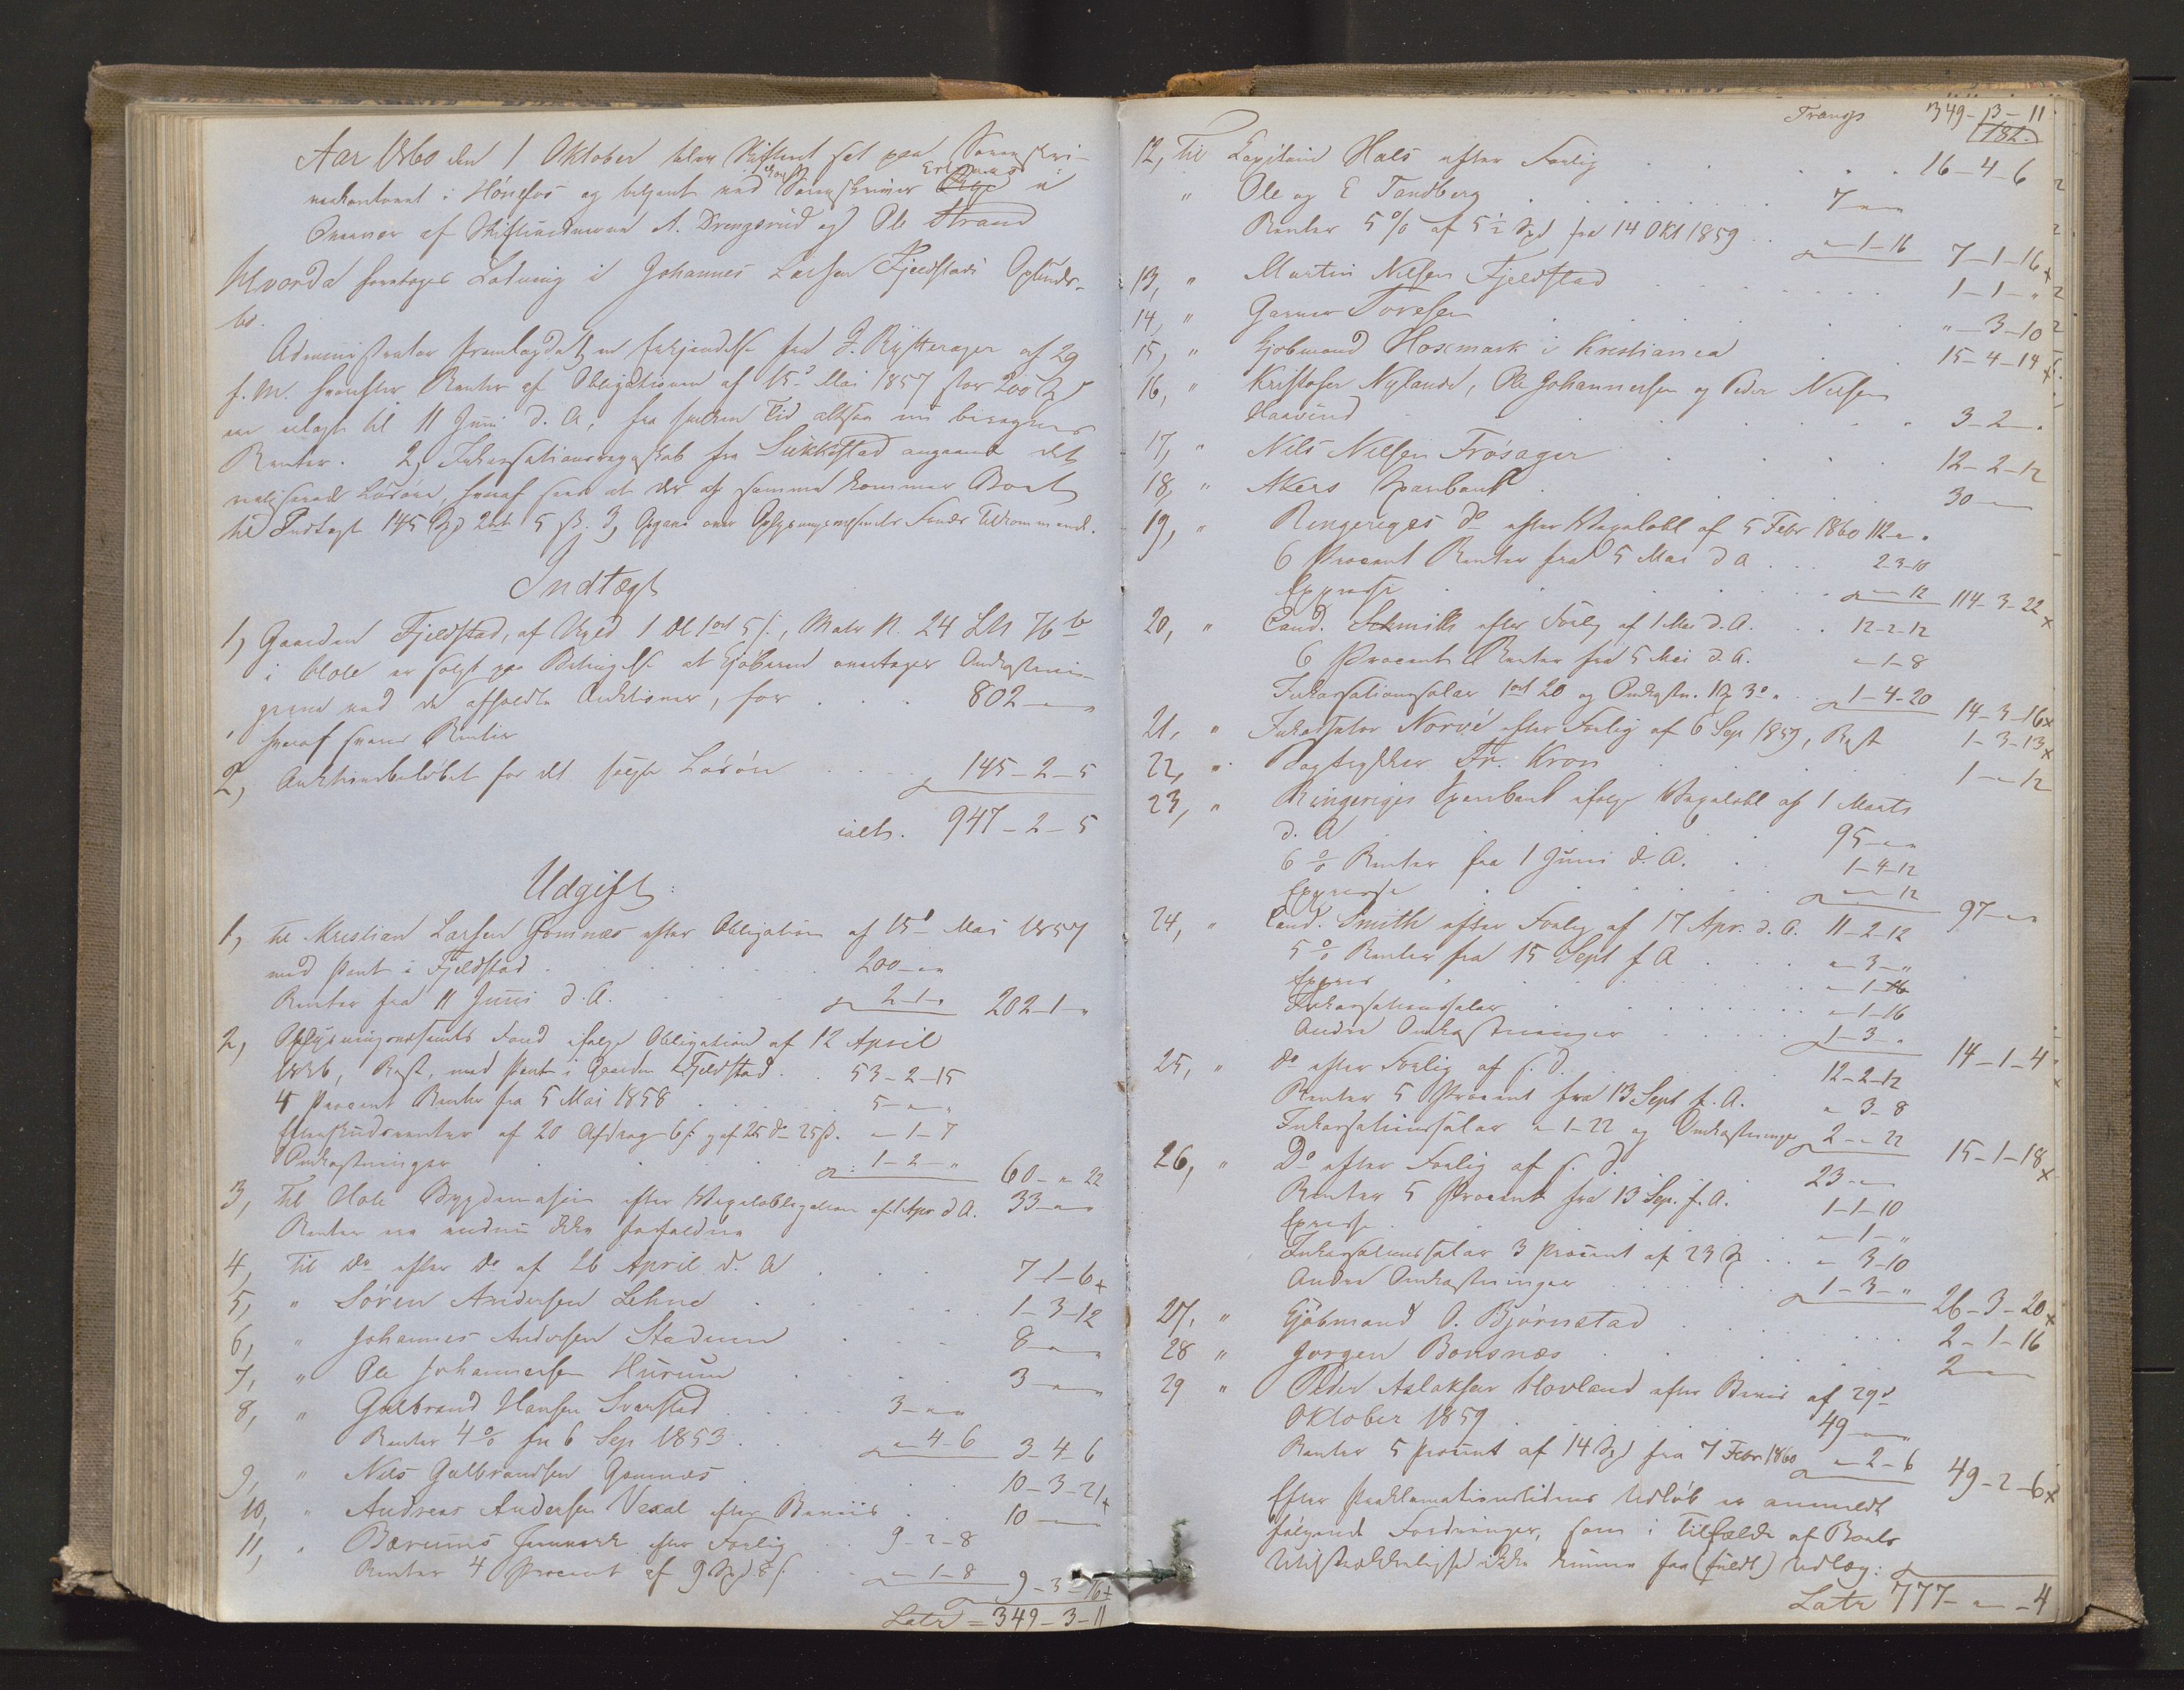 Aar 1860 den 1 Oktober blev Skifteret sat paa Sorenskri-
verkontoret i Hönefos og betjent ved Sorenskriver Erlsens i
Overvær af Skiftevidnerne A. Drengsrud og Ole Strand
Hvorda foretoges Lodning i Johannes Larsen Fjeldstads Opbuds-
bo.
Administrator fremlagde 1, en Erkjendelse fra J. Rytterager af 29
f. M. hvorefter Renter af Obligationen af 15d Mai 1857 stor 200 Spd
er erlagt til 11 Juni d. A, fra hvilken Tid altsaa nu beregnes
Renter. 2, Inkassationsregnskab fra Sukkestad angaaende det
realiserede Lösöre, hvoraf sees at der af samme kommer Boet
til Indtægt 145 Spd 2 ort 5 sk. 3, Opgave over Oplysningsvæsenets Fonds Tilkommende.
Indtægt
1, Gaarden Fjeldstad, af Skyld 1 Dl 1 ort 5 sk, Matr N. 24 LN 76 b
i Hole er solgt paa Betingelse at Kjöberen overtager Omkostnin-
gerne ved de afholdte Auktioner, for . . . 802 - " - "
hvoraf svares Renter
2, Auktionsbelöbet for det solgte Lösöre . . . 145 - 2 - 5
ialt. 947 - 2 - 5
Udgift:
1, Til Kristian Larsen Gomnæs efter Obligation af 15d Mai 1857
med Pant i Fjeldstad . . . 200 - " - "
Renter fra 11 Juni d. A. . . . 2 - 1 - " 202 - 1 - "
2, Oplysningsvæsenets Fond ifølge Obligation af 12 April
1826, Rest, med Pant i Gaarden Fjeldstad . . 53 - 2 - 15
4 Procent Renter fra 5 Mai 1858 . . . 5 - " - "
Efterskudsrenter af 20 Afdrag 6 sk og af 25 do 25 sk. " - 1 - 7
Omkostninger . . . 1 - 2 - " 60 - " 22
3, Til Hole Bygdemagasin efter Vexelobligation af 1 Apr d A. 33 - " - "
Renter ere endnu ikke forfaldne
4, Til do efter do af 26 April d. A . . . 7 - 1 - 6 +
5, " Sören Andersen Lehne . . . 1 - 3 - 12
6, " Johannes Andersen Stadum . . . 8 - " - "
7, " Ole Johannesen Hurum . . . 3 - " - "
8, " Gulbrand Hansen Svarstad . . . 3 - " - "
Renter 4 % fra 6 Sep 1853 . . . " - 4 - 6 3 - 4 - 6
9, " Nils Gulbrandsen Gomnæs . . . 10 - 3 - 21 +
10, " Andreas Andersen Vexal efter Beviis . . . 10 - " - "
11, " Bærums Jernverk efter Forlig . . 9 - 2 - 8
Renter 4 Procent af 9 Spd 8 sk . . " - 1 - 8 9 - 3 - 16 +
Latr = 349 - 3 - 11
Transp 349 - 3 - 11
182.
12, Til Kapitain Hals efter Forlig . . . 16 - 4 - 6
" Ole og E Tandberg . . . 7 - " - "
Renter 5 % af 5 1/2 Spd fra 14 Okt 1859 . . " - 1 - 16 7 - 1 - 16 +
13, " Martin Nilsen Fjeldstad . . . 1 - 1 - "
14, " Garver Toresen . . . " - 3 - 10
15, " Kjöbmand Hoxmark i Kristiania . . 15 - 4 - 14 +
16, " Kristofer Nylande, Ole Johannesen og Peder Nilsen
. . . 3 - 2 - "
17, " Nils Nilsen Frösager . . . 12 - 2 - 12
18, " Akers Sparebank . . . 30 - "
19, " Ringeriges do efter Vexelobl af 5 Febr 1860 112 - " - "
6 Procent Renter fra 5 Mai d A . . . 2 - 3 - 10
Expresse . . . " - " - 12 114 - 3 - 22 +
20, " Cand. Schmith efter Forlig af 1 Mai d. A. . . 12 - 2 - 12
6 Procent Renter fra 5 Mai d. A. " - 1 - 8
Inkassationssalær 1 ort 20 og Omkostn. 1 Spd 3 o " . . 1 - 4 - 20 14 - 3 - 16 +
21, " Inkassator Norvé efter Forlig af 6 Sep 1859, Rest 1 - 3 - 13 +
22, " Bogtrykker Fr. Kron . . . 1 - " - 12
23, " Ringeriges Sparebank ifølge Vexelobl af 1 Marts
d. A . . . 95 - " - "
6 % Renter fra 1 Juni d. A. . . 1 - 4 - 12
Expresse . . . " - " - 12 97 - " - "
24, " Cand. Smith efter Forlig af 17 Apr. d. A. 11 - 2 - 12
5 % Renter fra 15 Sept f A . . . " - 3 - "
Expres . . . " - 1 - 16
Inkassationssalær . . . " - 1 - 16
Andre Omkostninger . . . 1 - 3 - " 14 - 1 - 4
25, " do efter Forlig af s. d. . . . 12 - 2 - 12
Renter 5 Procent fra 13 Sept f. A. " - 3 - 8
Inkassationssalær " - 1 - 22 og Omkostninger 2 - " - 22 15 - 1 - 18 +
26, " Do efter Forlig af s. d. . . . 23 - " - "
Renter 5 Procent fra 13 Sep. f. A. 1 - 1 - 10
Expresse . . . " - 1 - "
Inkassationssalær 3 Procent af 23 Spd . . " - 3 - 10
Andre Omkostninger . . . 1 - 3 - " 26 - 3 - 20 +
27, " Kjöbmand O. Bjørnstad . . . 2 - 1 - 16
28 " Jörgen Bonsnæs . . . 2 - " - "
29 " Peder Aslaksen Hovland efter Bevis af 29d
Oktober 1859 . . . 49 - " - "
Renter 5 Procent af 14 Spd fra 7 Febr 1860 " - 2 - 6 49 - 2 - 6 +
Efter Proklamationstidens Udlöb er anmeldt
fölgende Fordringer, som i Tilfælde af Boets
Utilstrækkelighed ikke kunne faa (fuldt) Udlæg:
Latr 777 - " - 4